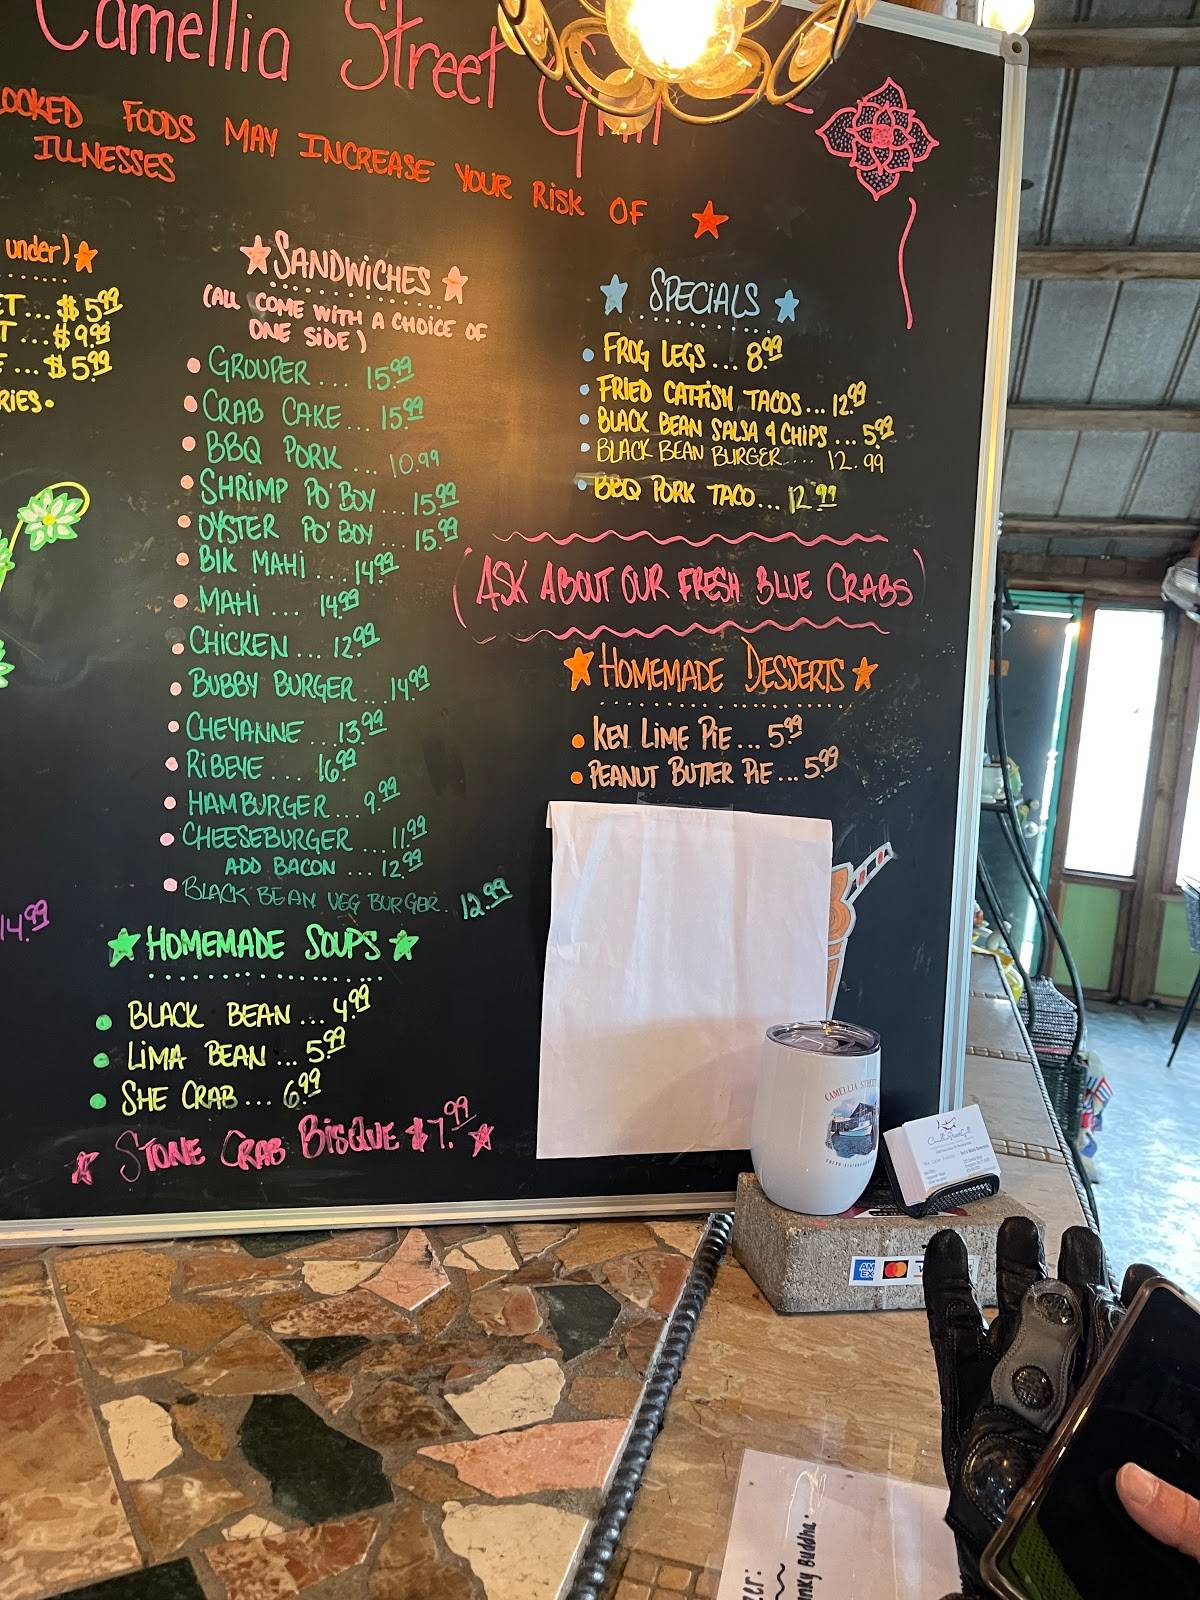 Camellia Street Grill
COOKED FOODS MAY INCREASE YOUR RISK OF
ILLNESSES
under)
ET... $5.99
T...$9.99
E...$5.99
RIES.
14.99
SANDWICHES
(ALL COME WITH A CHOICE OF
ONE SIDE)
GROUPER... 15.99
CRAB CAKE... 15.99
BBQ PORK... 10.99
SHRIMP PO'BOY... 15.99
OYSTER PO'BOY... 15.99
BIK MAHI... 14.99
MAHI... 14.99
CHICKEN... 12.99
BUBBY BURGER... 14.99
CHEYANNE... 13.99
RIBEYE.... 16.99
HAMBURGER... 9.99
CHEESEBURGER... 11.99
ADD BACON... 12.99
BLACK BEAN VEG BURGER.. 12.99
HOMEMADE SOUPS
BLACK BEAN... 4.99
LIMA BEAN... 5.99
SHE CRAB... 6.99
STONE CRAB BISQUE $7.99
SPECIALS
FROG LEGS... 8.99
FRIED CATFISH TACOS... 12.99
BLACK BEAN SALSA & CHIPS... 5.99
BLACK BEAN BURGER.... 12.99
BBQ PORK TACO.... 12.99
(ASK ABOUT OUR FRESH BLUE CRABS)
HOMEMADE DESSERTS
KEY LIME PIE... 5.99
PEANUT BUTTER PIE... 5.99
CAMELLIA STREET
Camellia Street Grill
AM
EX
zer:
nky Buddha.